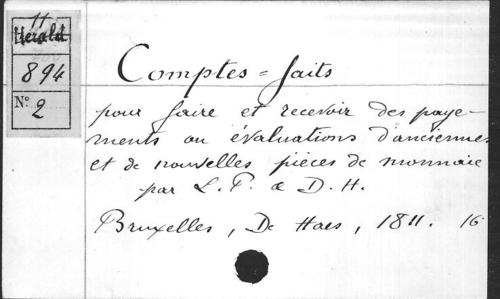 11
Herald
894
N° 2
Comptes=faits
pour faire et recevoir des paye-
ments ou évaluations d'anciennes
et de nouvelles pièces de monnaie
par L. P. & D. H.
Bruxelles, De Haes, 1811. 16